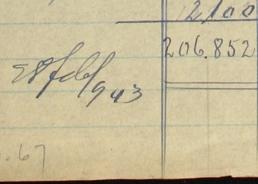 2100
206.852
28 feb/943
.67